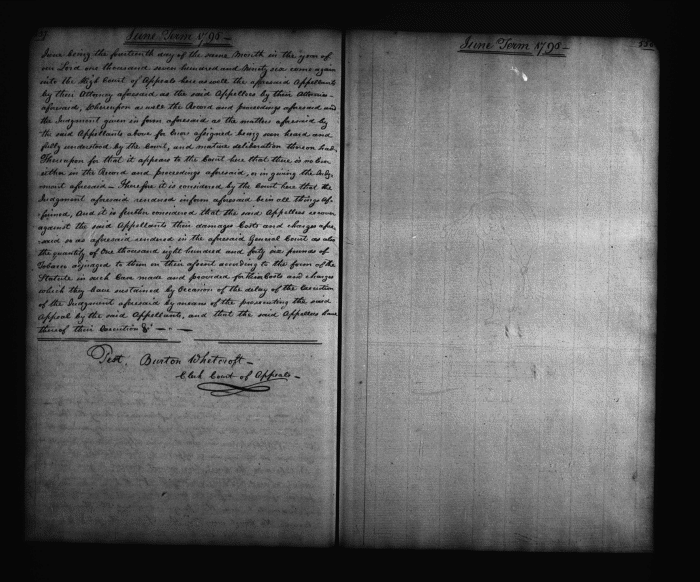 June Term 1795 –
June being the fourteenth day of the same Month in the year of
our Lord one thousand seven hundred and Ninety six come again
into the High Court of Appeals here as well the aforesaid Appellants
by their Attorney aforesaid as the said Appellees by their Attornies
aforesaid, Whereupon as well the Record and proceedings aforesaid and
the Judgment given in form aforesaid as the matters aforesaid by
the said Appellants above for Errors assigned being seen heard and
fully understood by the Court, and mature deliberation thereon had.
Thereupon for that it appears to the Court here that there is no Error
either in the Record and proceedings aforesaid, or in giving the Judg-
ment aforesaid – Therefore it is considered by the Court here that the
Judgment aforesaid rendered in form aforesaid be in all things Af-
firmed, And it is further considered that the said Appellees recover
against the said Appellants their damages Costs and charges afore-
said so as aforesaid rendered in the aforesaid General Court as also
the quantity of One thousand eight hundred and forty six pounds of
Tobacco adjudged to them on their assent according to the form of the
Statute in such Case made and provided for their Costs and charges
which they have sustained by Occasion of the delay of the Execution
of the Judgment aforesaid by means of the prosecuting the said
Appeal by the said Appellants, and that the said Appellees have
thereof their Execution &c — " —
Test. Burton Whetcroft –
Clerk Court of Appeals –
June Term 1795 –